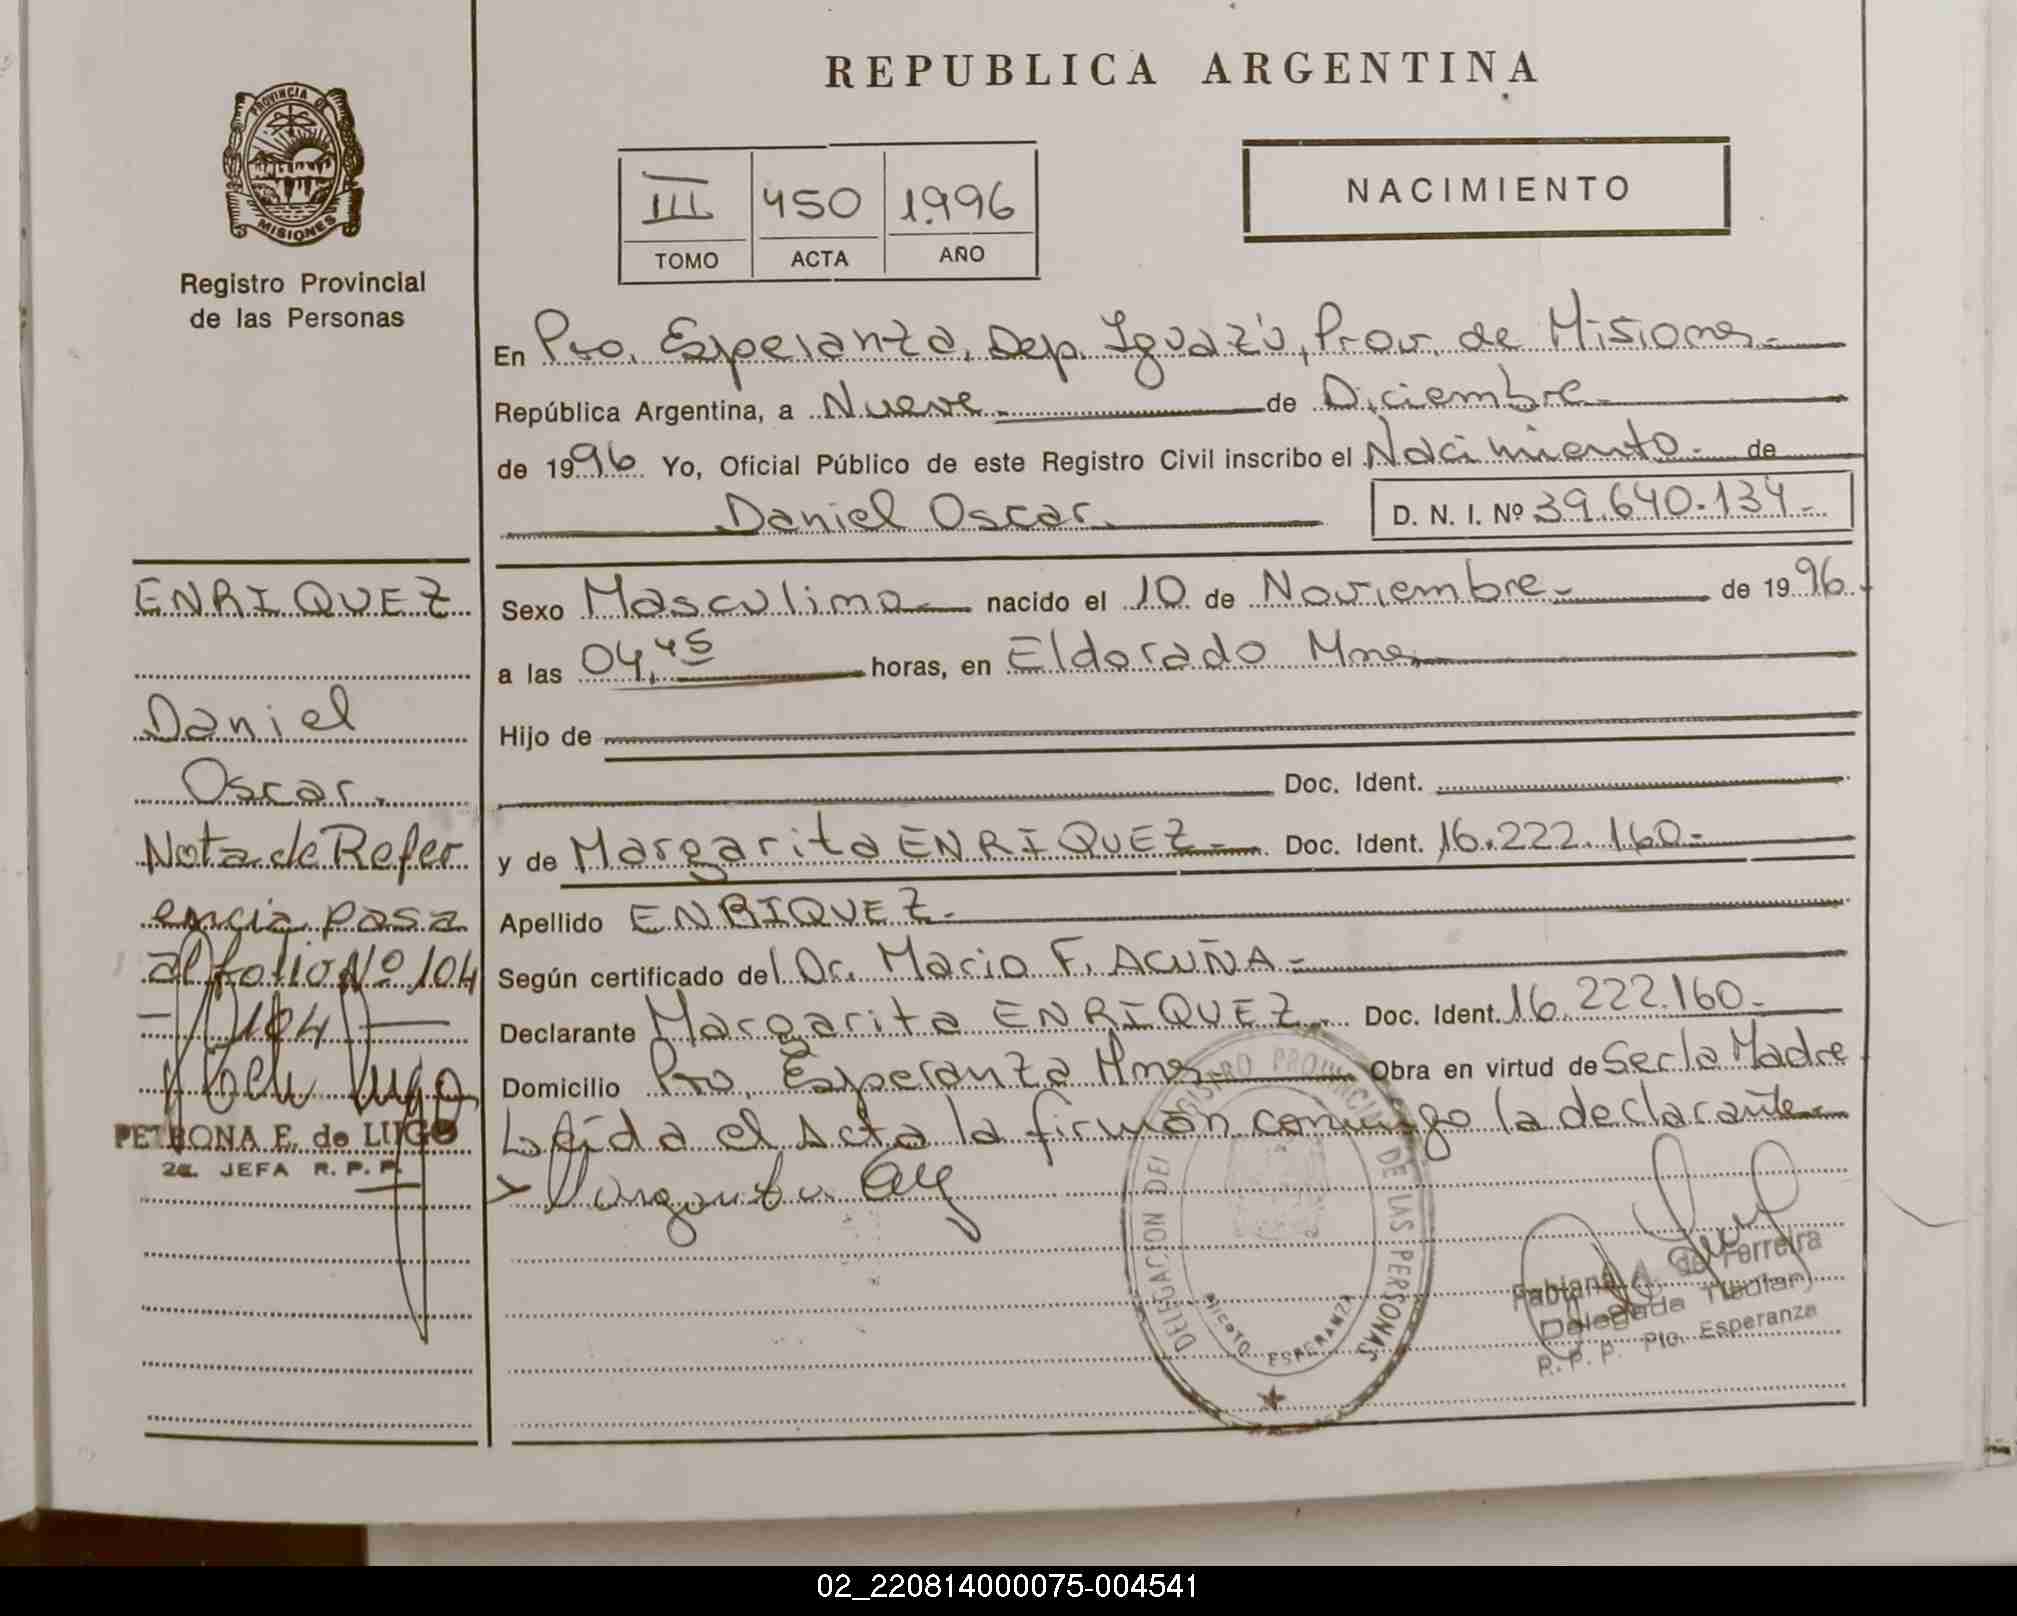 REPUBLICA ARGENTINA
PROVINCIA DE
MISIONES
Registro Provincial
de las Personas
III 450 1996
TOMO ACTA AÑO
NACIMIENTO
En Pto. Esperanza, Dep. Iguazú, Prov. de Misiones.-
República Argentina, a Nueve.- de Diciembre.-
de 1996 Yo, Oficial Público de este Registro Civil inscribo el Nacimiento.- de
Daniel Oscar. D. N. I. Nº 39.640.134.-
Sexo Masculino.- nacido el 10 de Noviembre.- de 1996.-
a las 04,45 horas, en Eldorado Mnes.-
Hijo de
Doc. Ident.
y de Margarita ENRIQUEZ.- Doc. Ident. 16.222.160.-
Apellido ENRIQUEZ.-
Según certificado del Dr. Mario F. ACUÑA.-
Declarante Margarita ENRIQUEZ.- Doc. Ident. 16.222.160.-
Domicilio Pto. Esperanza Mnes. Obra en virtud de Ser la Madre
Leída el Acta la firman conmigo la declarante.-
Margarita
ENRIQUEZ
Daniel
Oscar.
Nota de Refer
encia pasa
al folio Nº 104
- 104 -
PETRONA E. de LUGO
2a. JEFA R. P. P.
DELEGACION DEL REGISTRO PROVINCIAL DE LAS PERSONAS
PUERTO ESPERANZA
Fabiana A. de Ferreira
Delegada Titular
R. P. P. Pto. Esperanza
02_220814000075-004541